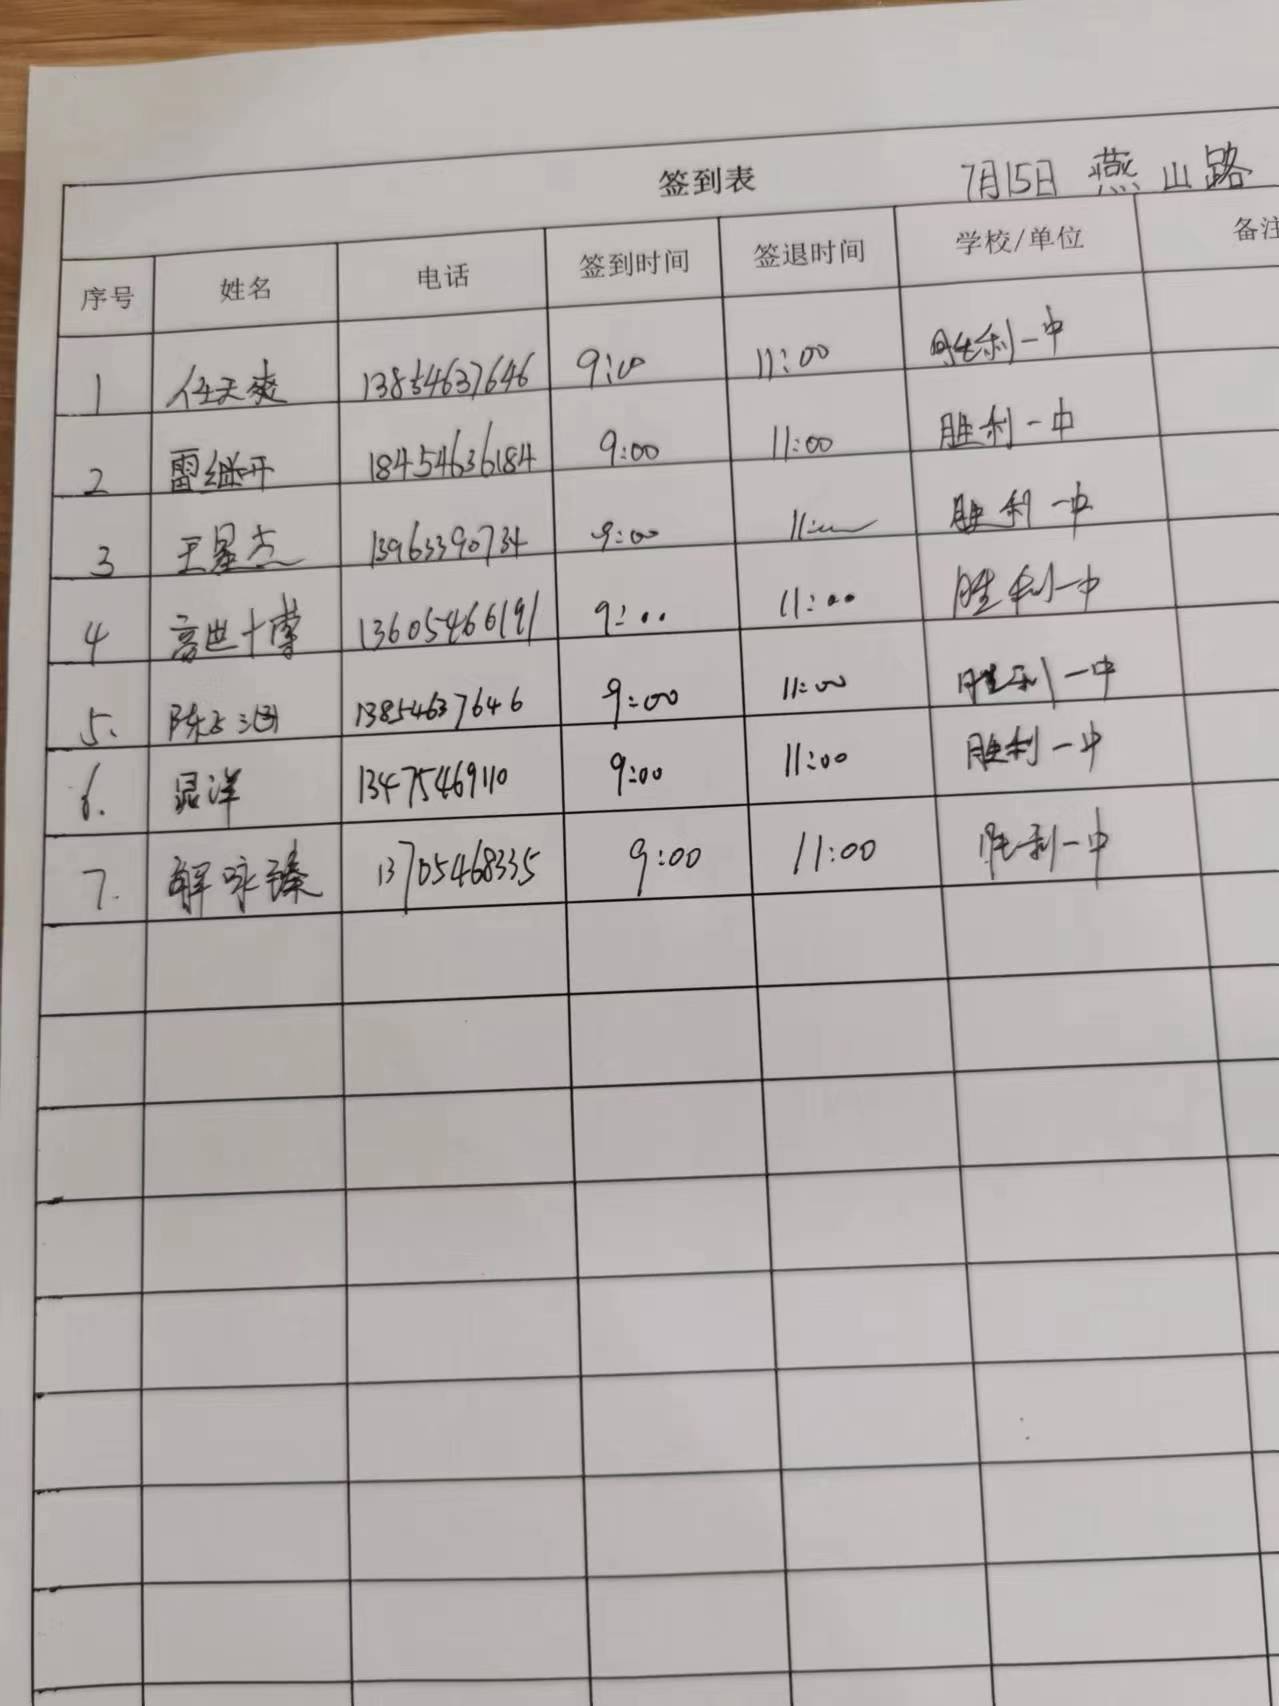 签到表 7月15日 燕山路
序号 姓名 电话 签到时间 签退时间 学校/单位 备注
1 任天爽 13854637646 9:00 11:00 胜利一中
2 雷继开 18454636184 9:00 11:00 胜利一中
3 王星杰 13963390734 9:00 11:00 胜利一中
4 13605466191 9:00 11:00 胜利一中
5. 13854637646 9:00 11:00 胜利一中
6. 13475469110 9:00 11:00 胜利一中
7. 解咏臻 13705468335 9:00 11:00 胜利一中